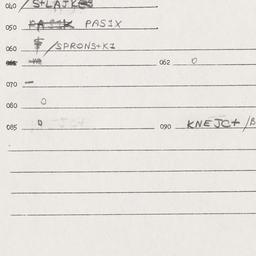 040 / S+LAJK
050 PASIX
060 /SPRONS+KI
062 0
070 -
080 0
085 0 090 KNEJC+ /B